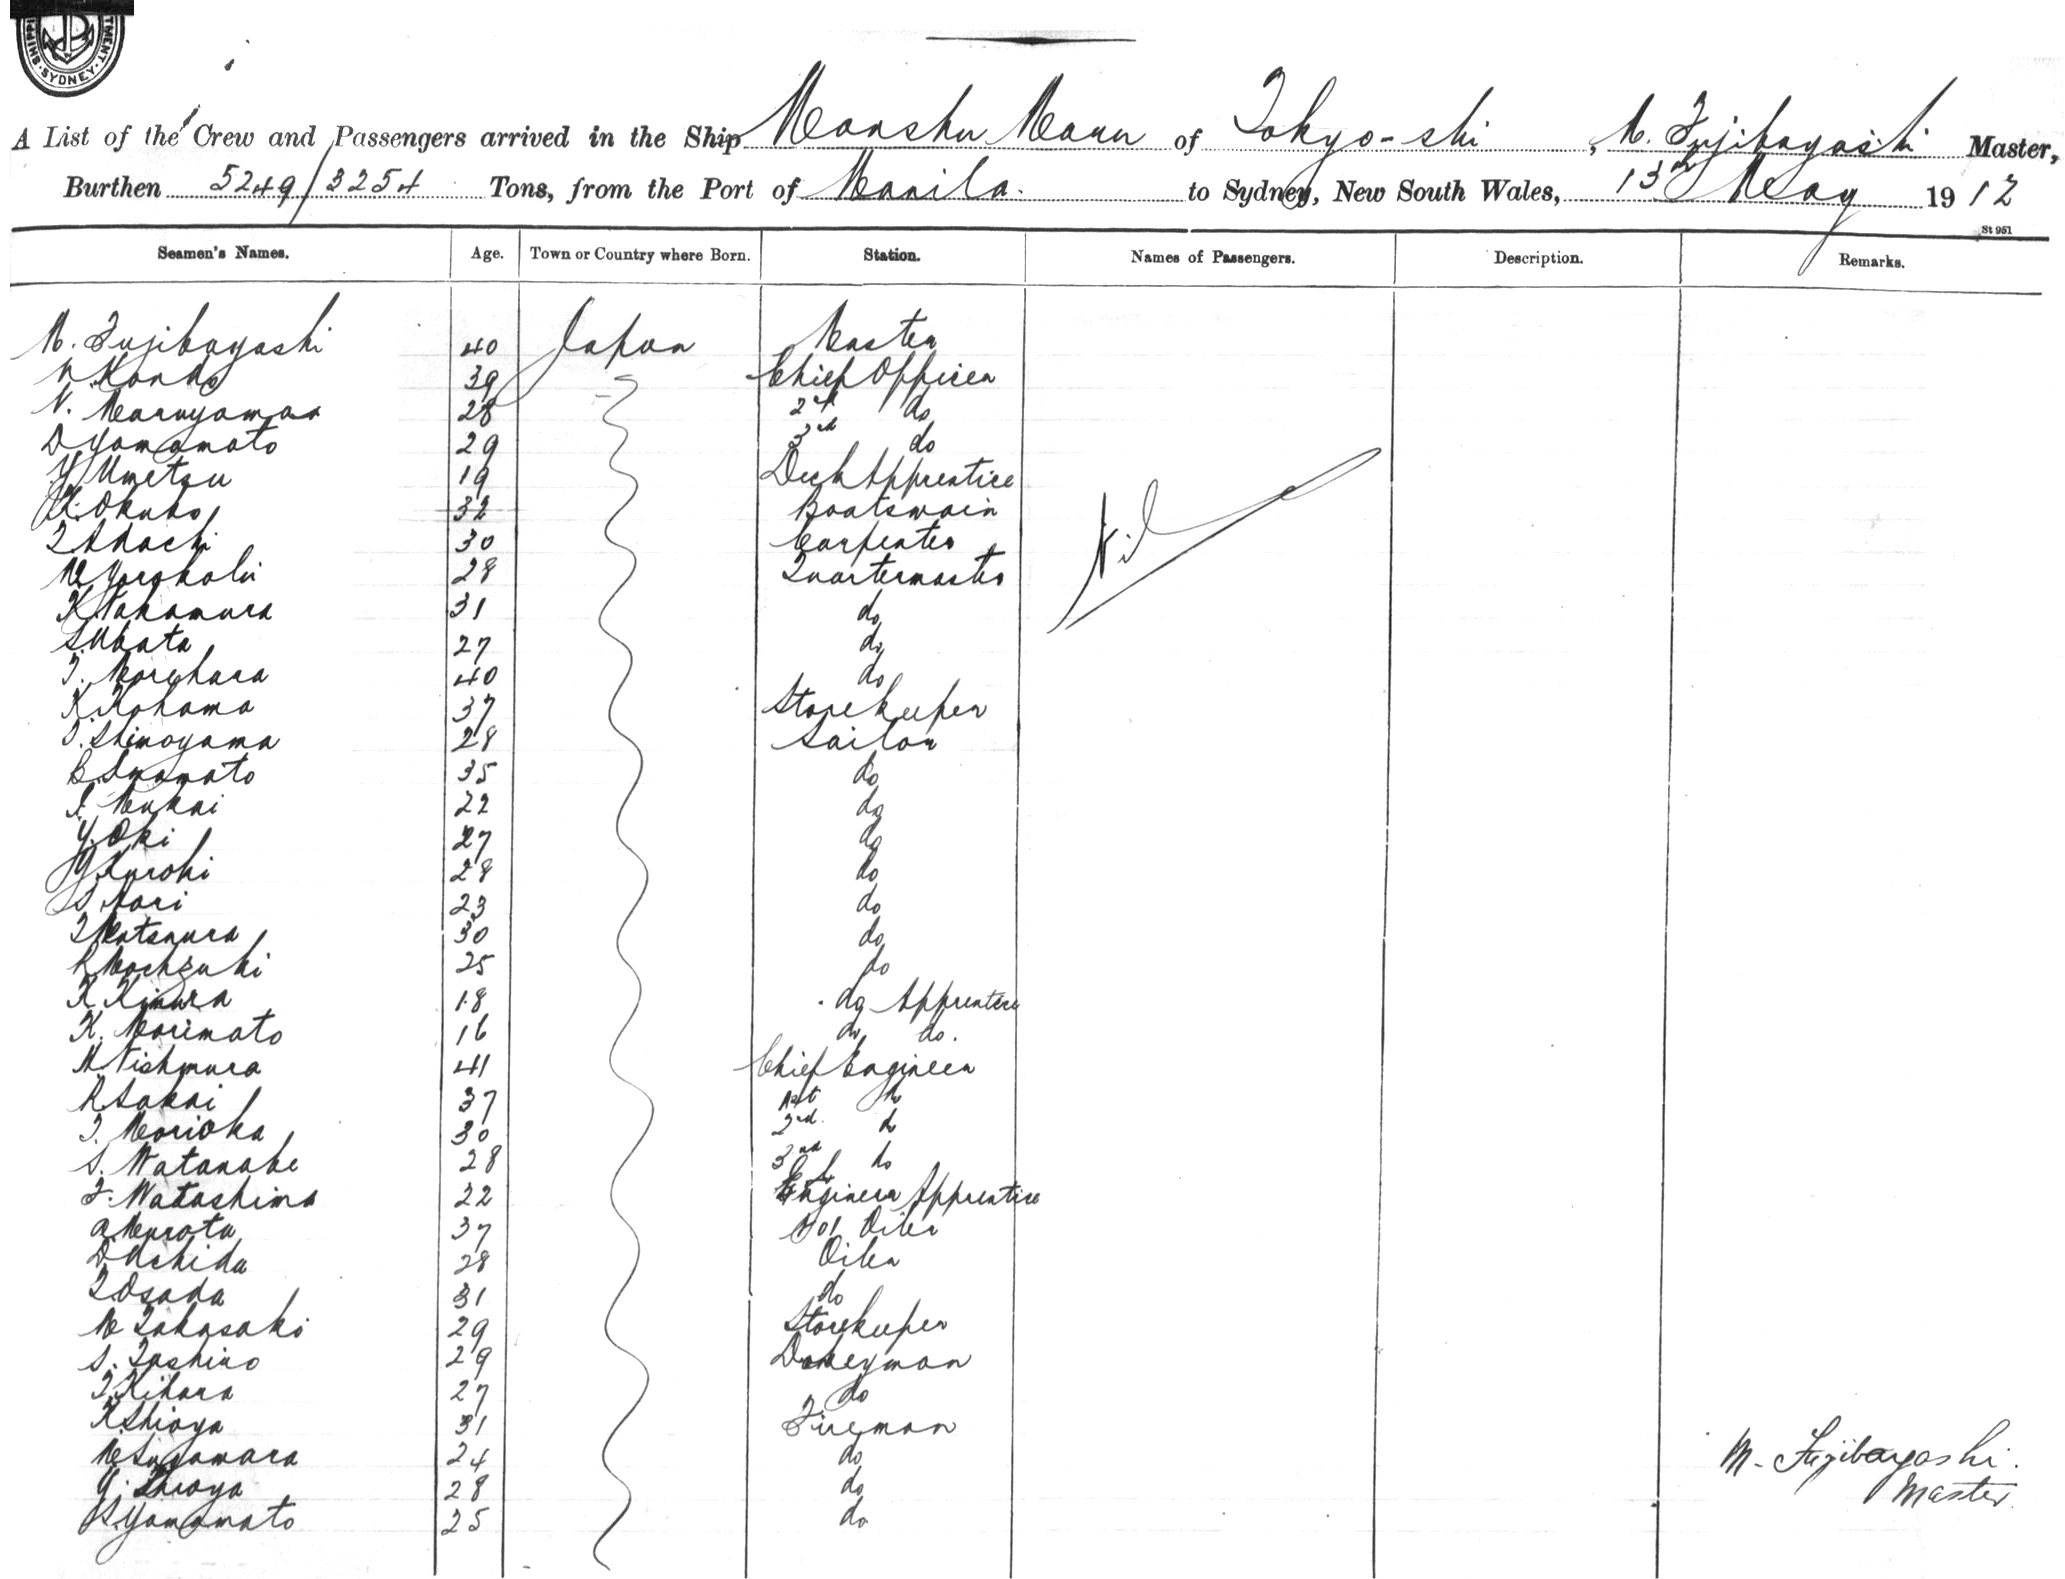 SHIPPI TMENT · SYDNEY ·
A List of the Crew and Passengers arrived in the Ship Manshu Maru of Tokyo-shi, M. Fujibayashi Master,
Burthen 5249/3254 Tons, from the Port of Manila. to Sydney, New South Wales, 13th May 1912
St 951
Seamen's Names. Age. Town or Country where Born. Station. Names of Passengers. Description. Remarks.
M. Fujibayashi 40 Japan Master
Kondo 39 Chief Officer
N. Maruyama 28 2nd do
D Yamamoto 29 3rd do
Y Umetsu 19 Deck Apprentice
K. Okubo 32 Boatswain
T Adachi 30 Carpenter
Nil
M 28 Quartermaster
K Nakamura 31 do
S. Ubata 27 do
T. Morihara 40 do
K Kohama 37 Storekeeper
T. Shinoyama 28 Sailor
B. Imamato 35 do
I. Mukai 22 do
Y. Oki 27 do
Y Kuroki 28 do
S. Mori 23 do
T Matsuura 30 do
R Mochzuki 25 do
K Kimura 18 do Apprentice
K. Morimoto 16 do do.
N Nishmura 41 Chief Engineer
R Sakai 37 1st do
T. Morioka 30 2nd do
S. Watanabe 28 3rd do
F. Watashima 22 Engineer Apprentice
A Murota 37 No1 Oiler
D Uchida 28 Oiler
T Osada 31 do
M Takasaki 29 Storekeeper
S. Tashiro 29 Donkeyman
T Kihara 27 do
K Shioya 31 Fireman
M Sugawara 24 do
Y. Shioya 28 do
S. Yamamoto 25 do
M. Fujibayashi.
Master.